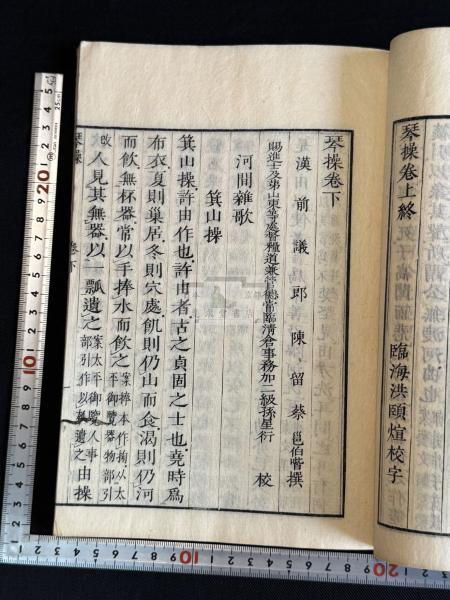 琴操卷上終
臨海洪頤煊校字
琴操卷下
漢前議郎陳留蔡邕伯喈撰
賜進士及第山東等處督糧道兼管德常臨清倉事務加二級孫星衍校
河間雜歌
箕山操
箕山操許由作也許由者古之貞固之士也堯時爲
布衣夏則巢居冬則穴處飢則仍山而食渴則仍河
而飲無杯器常以手捧水而飲之案捧本作掬从太平御覽器物部引
改人見其無器以一瓢遺之案太平御覽人事部引作以瓢遺之由操
琴操 卷下